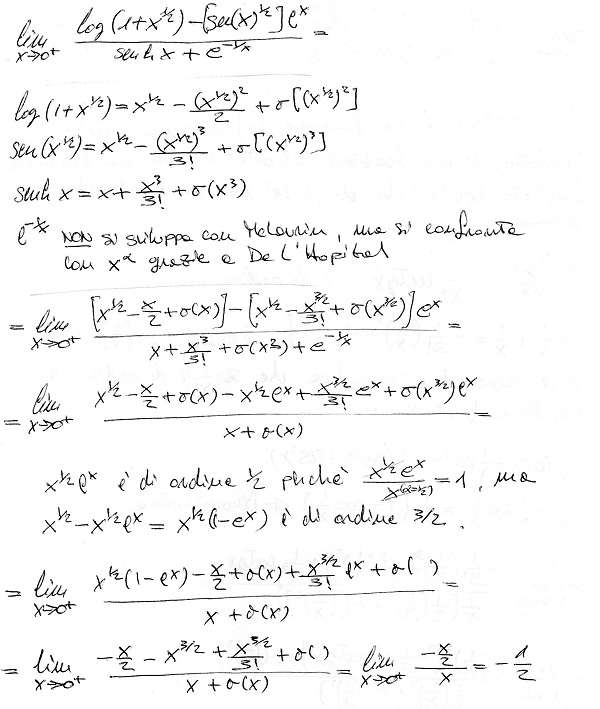 lim x→0⁺ (log (1+x^{1/2}) − [sen(x)^{1/2}] e^x) / (senh x + e^{-1/x}) =
log (1+x^{1/2}) = x^{1/2} − (x^{1/2})²/2 + σ[(x^{1/2})²]
sen(x^{1/2}) = x^{1/2} − (x^{1/2})³/3! + σ[(x^{1/2})³]
senh x = x + x³/3! + σ(x³)
e^{-1/x} NON si sviluppa con McLaurin, ma si confronta
con x^α grazie a De L'Hopital
= lim x→0⁺ ([x^{1/2} − x/2 + σ(x)] − [x^{1/2} − x^{3/2}/3! + σ(x^{3/2})] e^x) / (x + x³/3! + σ(x³) + e^{-1/x}) =
= lim x→0⁺ (x^{1/2} − x/2 + σ(x) − x^{1/2} e^x + x^{3/2}/3! e^x + σ(x^{3/2}) e^x) / (x + σ(x)) =
x^{1/2} e^x è di ordine 1/2 perchè x^{1/2} e^x / x^{(α=1/2)} = 1, ma
x^{1/2} − x^{1/2} e^x = x^{1/2}(1−e^x) è di ordine 3/2.
= lim x→0⁺ (x^{1/2}(1−e^x) − x/2 + σ(x) + x^{3/2}/3! e^x + σ( )) / (x + σ(x)) =
= lim x→0⁺ (−x/2 − x^{3/2} + x^{3/2}/3! + σ( )) / (x + σ(x)) = lim x→0⁺ (−x/2) / x = −1/2